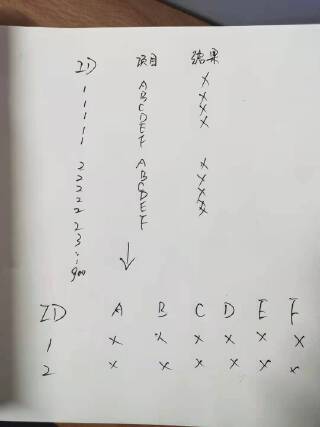 ID 项目 结果
1 A ×
1 B ×
1 C ×
1 D ×
1 E
1 F
2 A ×
2 B ×
2 C ×
2 D ×
2 E
2 F
3
⋮
900
↓
ID A B C D E F
1 × × × × × ×
2 × × × × × ×